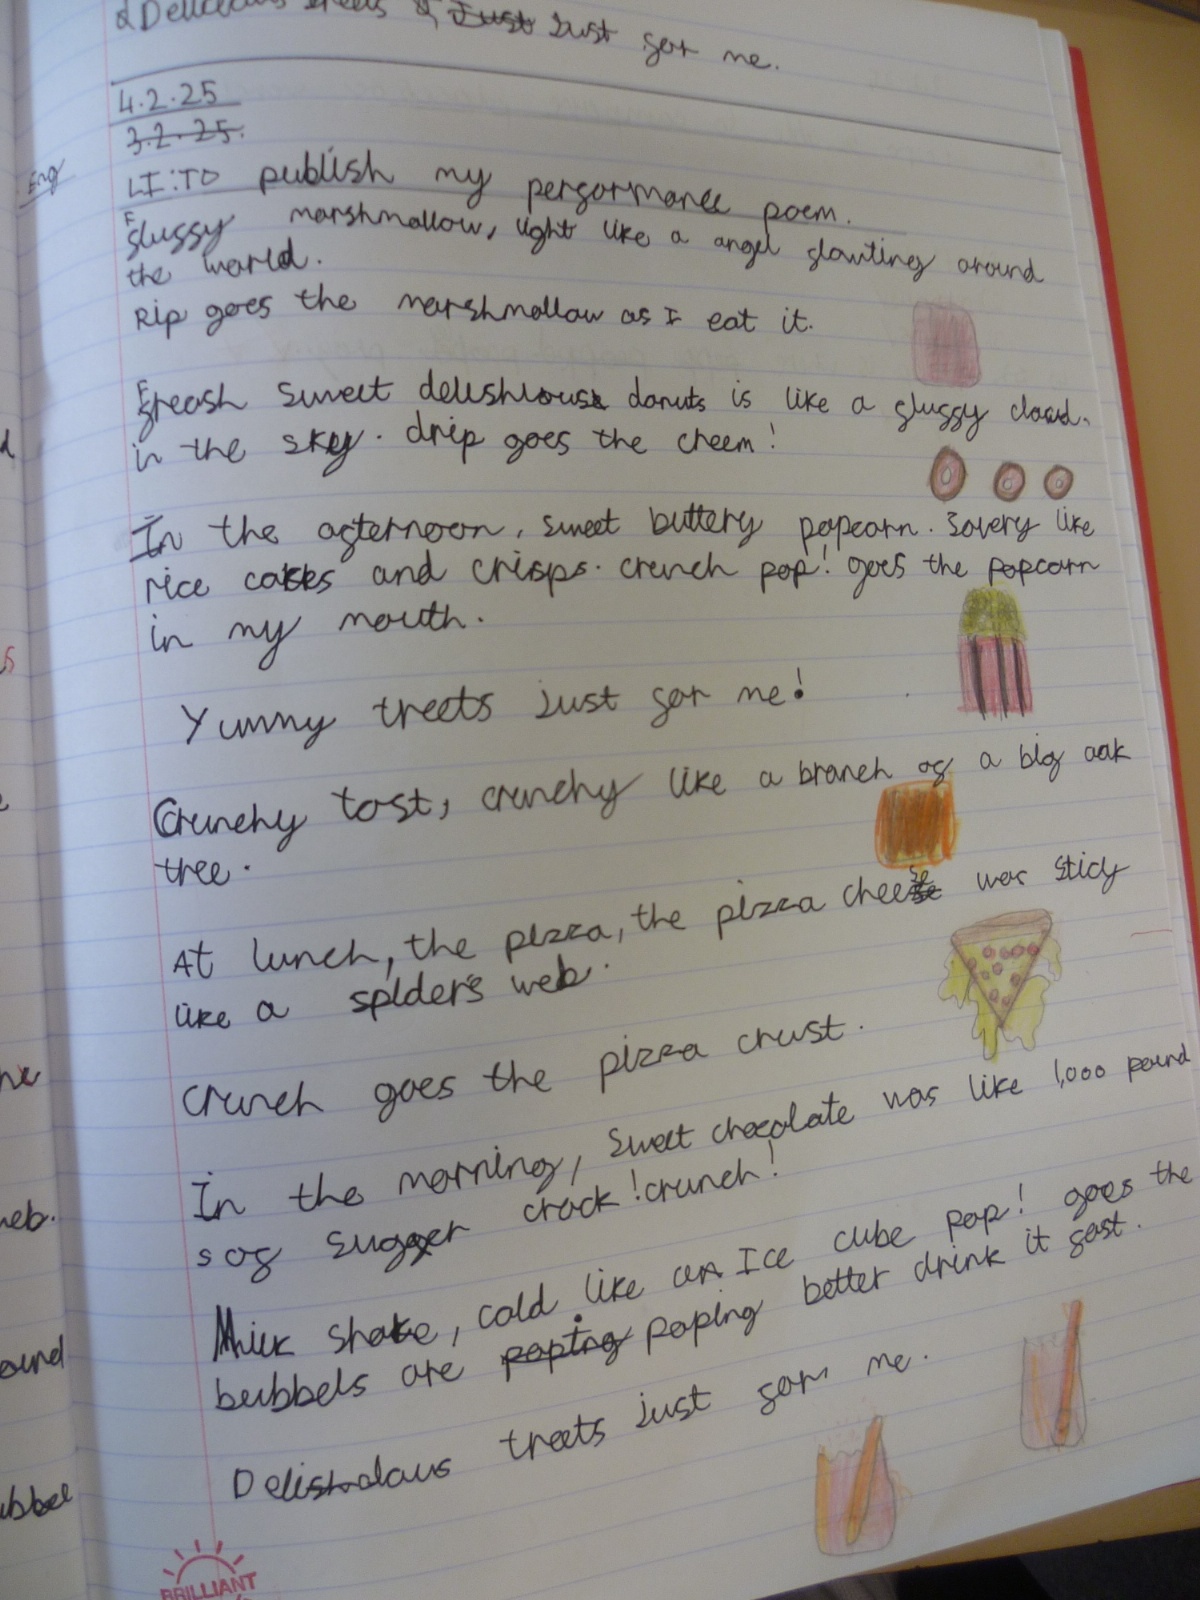 & Delicious treets Just Just for me.
4.2.25
3.2.25.
Eng
LI:TO publish my performance poem.
Fluffy marshmallow, light like a angel flowting around
the world.
Rip goes the marshmallow as I eat it.
Freash sweet delishious donuts is like a fluffy cloud.
in the sky. drip goes the creem!
In the afternoon, sweet buttery popcorn. Savery like
rice cakes and crisps. crunch pop! goes the popcorn
in my mouth.
Yummy treets just for me!
Crunchy tost, crunchy like a branch of a big oak
tree.
At lunch, the pizza, the pizza cheese was sticy
like a spider's web.
Crunch goes the pizza crust.
In the morning, sweet chocolate was like 1,000 pound
s of sugger crack! crunch!
Milk shake, cold like an Ice cube pop! goes the
bubbels are poping poping better drink it fast.
Delishous treets just for me.
BRILLIANT